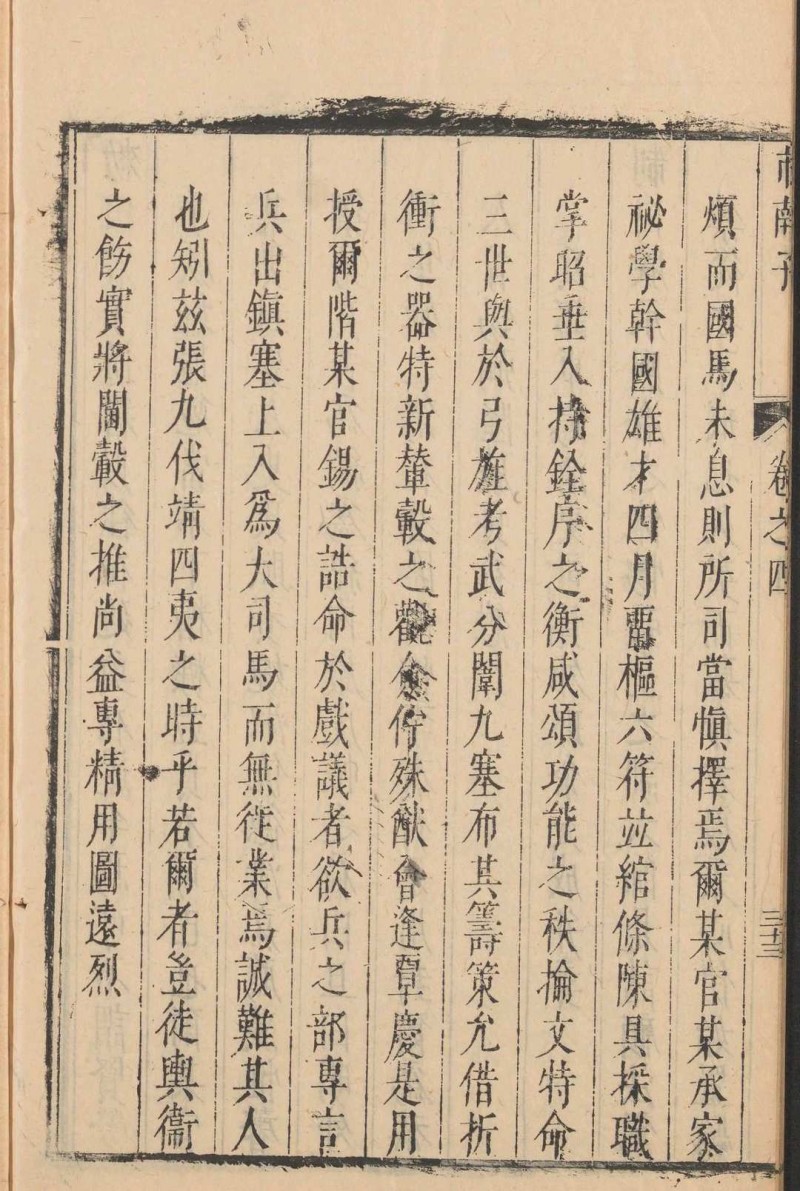 卷之四
三十三
煩而國馬未息則所司當慎擇焉爾某官某承家
祕學幹國雄才四月畱樞六符並綰條陳具採職
掌昭垂入持銓序之衡咸頌功能之秩掄文特命
三世輿於弓旌考武分闈九塞布其籌策允借折
衝之器特新輦轂之觀僉佇殊猷會逢覃慶是用
授爾階某官錫之誥命於戲議者欲兵之部專言
兵出鎮塞上入爲大司馬而無徙業焉誠難其人
也矧茲張九伐靖四夷之時乎若爾者豈徒輿衞
之飭實將閫轂之推尚益專精用圖遠烈